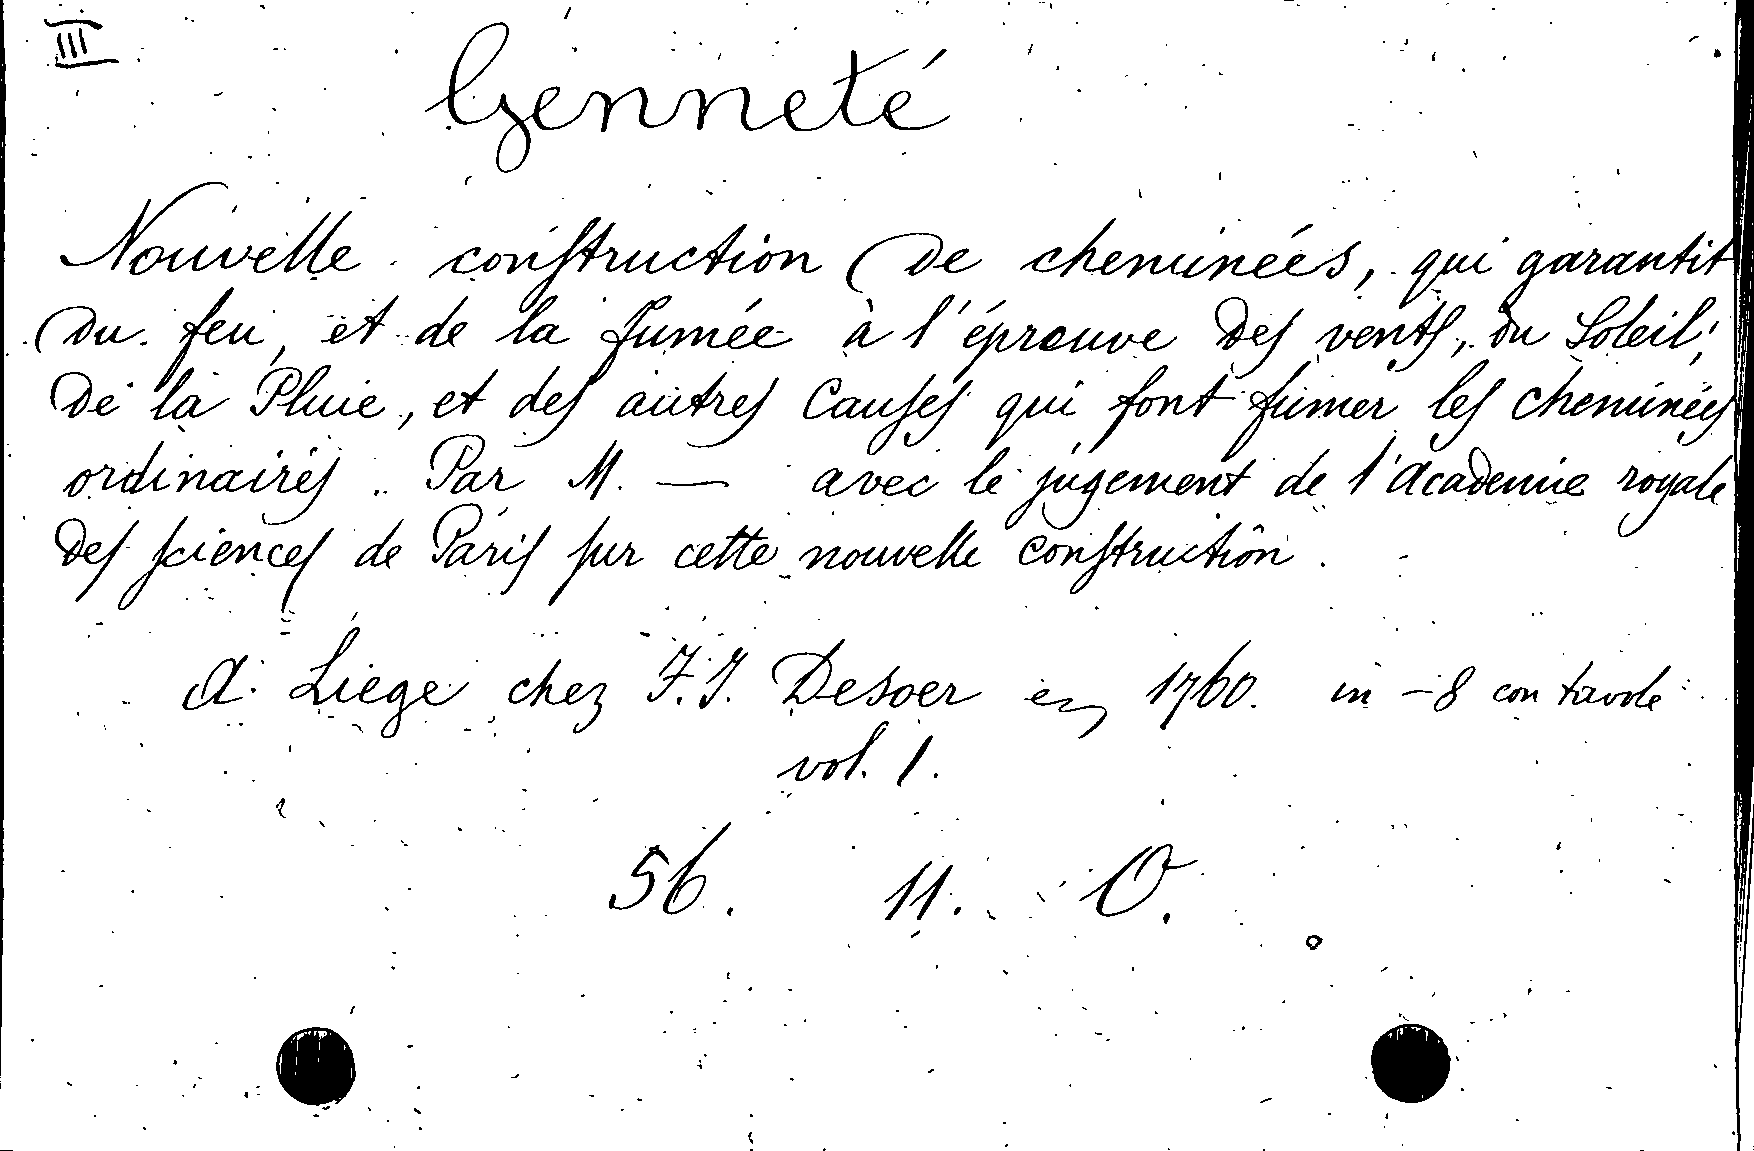 III
Genneté
Nouvelle conſtruction de cheminées, qui garantit
du feu, et de la fumée à l'épreuve des vents, du Soleil,
de la Pluie, et des autres Cauſes qui font fumer les cheminées
ordinaires. Par M. — avec le jugement de l'Academie royale
des ſciences de Paris ſur cette nouvelle conſtruction.
A Liege chez F. J. Desoer en 1760. in-8 con tavole
vol. 1.
56. 11. O.